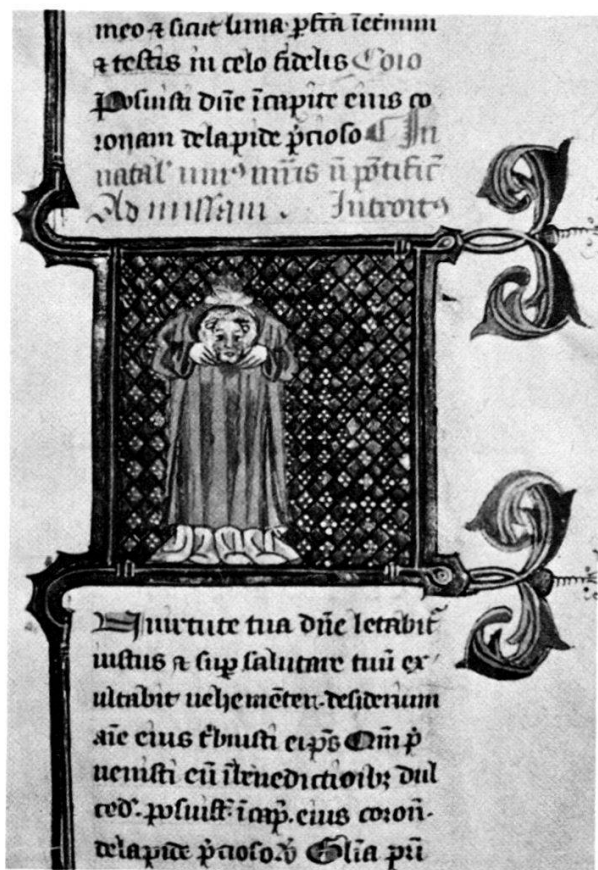 meo ⁊ sicut luna ꝑfcā īeternum
⁊ testis in celo fidelis Cōio
Posuisti dn̄e īcapite eius co
ronam delapide p̄cioso In
natal' uniꝰ mr̄is ⁊ pōtific̄
Ad missam . Introitꝰ
In uirtute tua dn̄e letabit᷑
iustus ⁊ suꝑ salutare tuū ex
ultabit uehemēter. desiderium
aīe eius t̄buisti ei ps̄ Qm̄ p̄
uenisti eū ībenedictioībꝫ dul
ced. posuist. īcap̄. eius coron̄.
delapide p̄cioso. Gl̄ia pr̄i